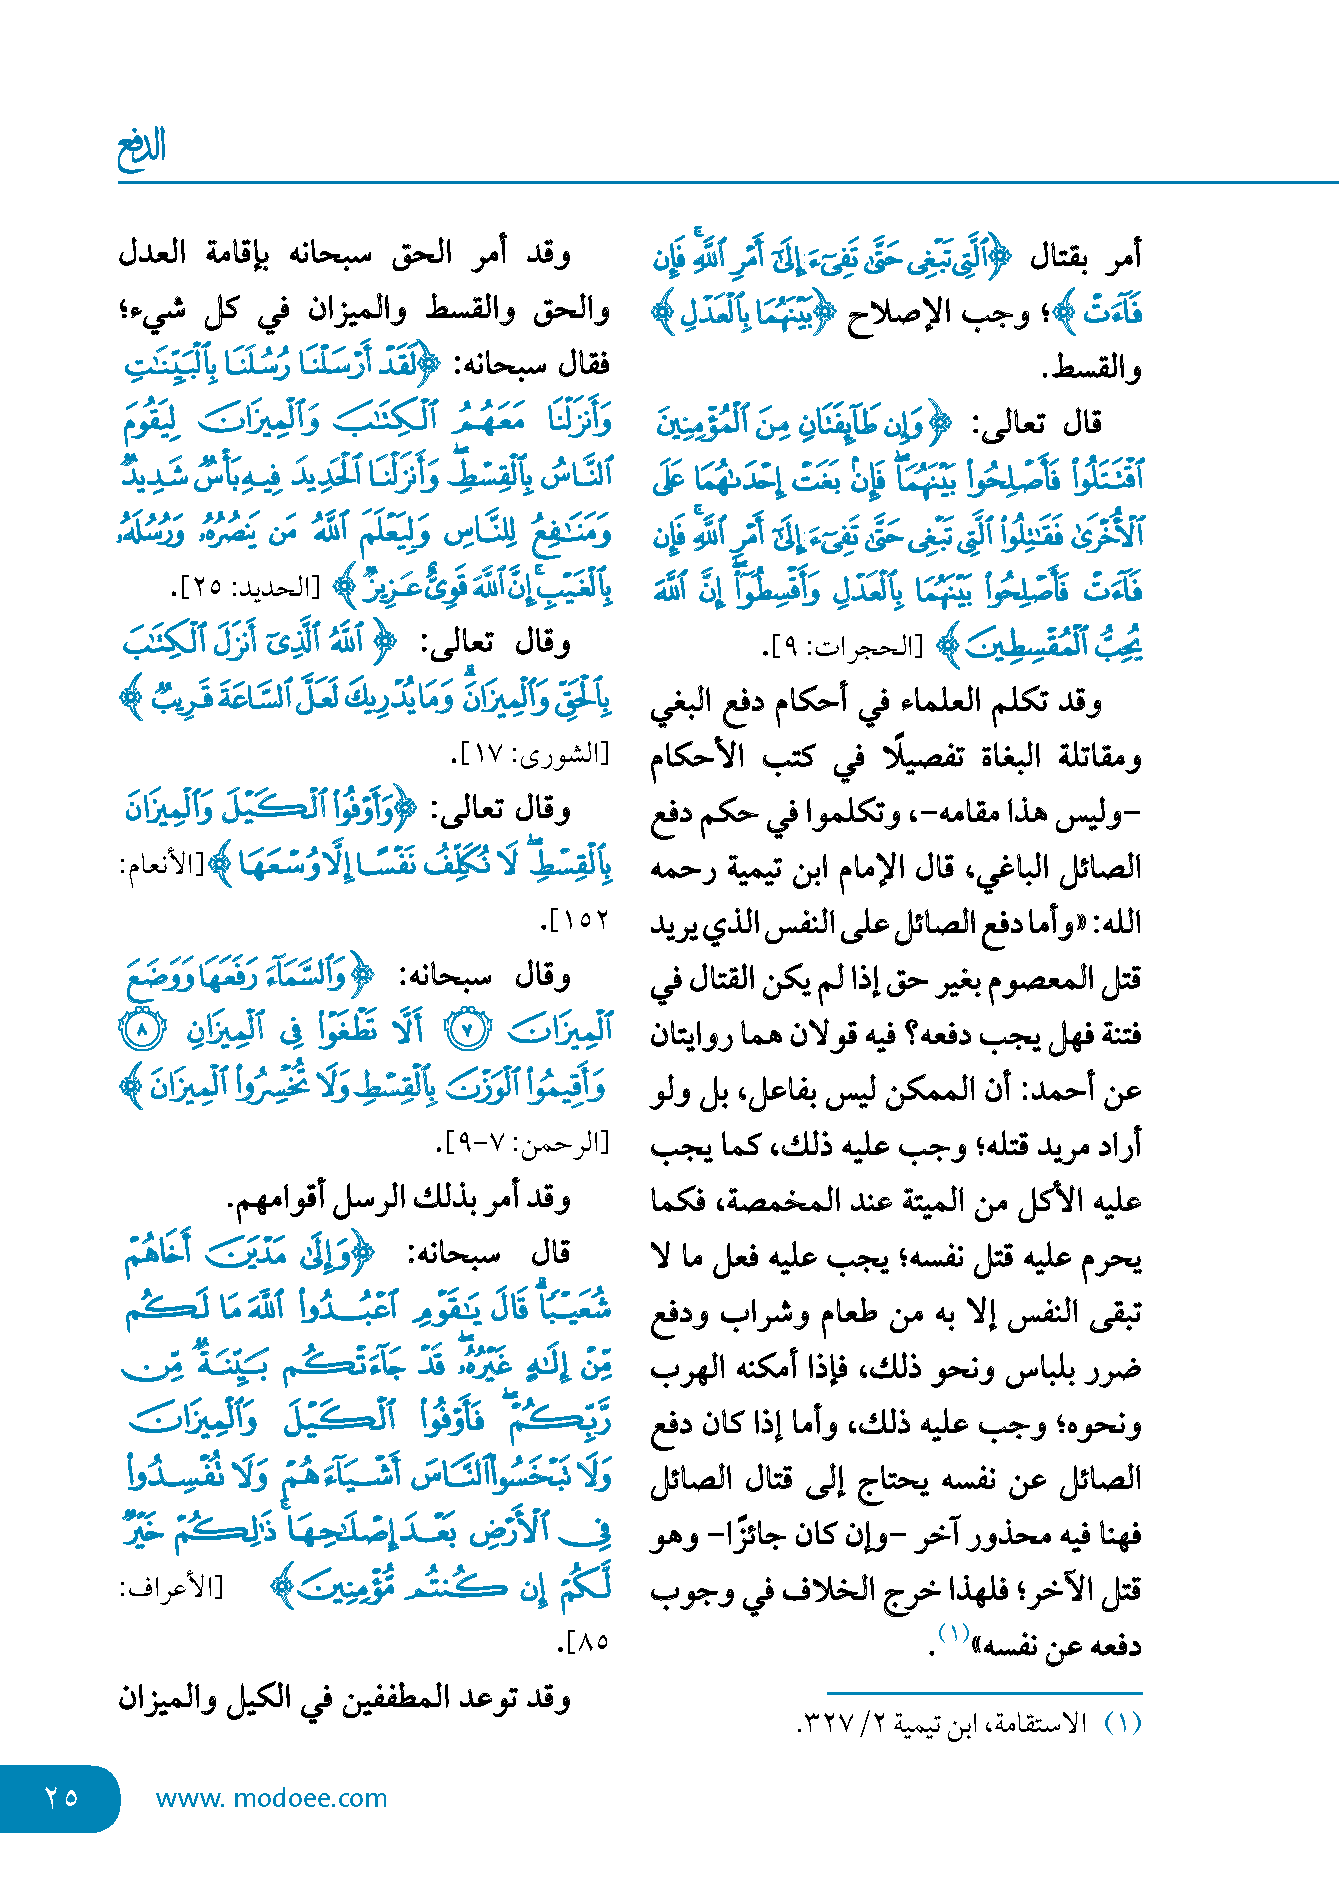 الدفع
أمر بقتال ﴿ٱلَّتِى تَبْغِى حَتَّىٰ تَفِىٓءَ إِلَىٰٓ أَمْرِ ٱللَّهِ ۚ فَإِن
فَآءَتْ ﴾؛ وجب الإصلاح ﴿بَيْنَهُمَا بِٱلْعَدْلِ ﴾
والقسط.
قال تعالى: ﴿وَإِن طَآئِفَتَانِ مِنَ ٱلْمُؤْمِنِينَ
ٱقْتَتَلُوا۟ فَأَصْلِحُوا۟ بَيْنَهُمَا ۖ فَإِنۢ بَغَتْ إِحْدَىٰهُمَا عَلَى
ٱلْأُخْرَىٰ فَقَٰتِلُوا۟ ٱلَّتِى تَبْغِى حَتَّىٰ تَفِىٓءَ إِلَىٰٓ أَمْرِ ٱللَّهِ ۚ فَإِن
فَآءَتْ فَأَصْلِحُوا۟ بَيْنَهُمَا بِٱلْعَدْلِ وَأَقْسِطُوٓا۟ ۖ إِنَّ ٱللَّهَ
يُحِبُّ ٱلْمُقْسِطِينَ ﴾ [الحجرات: ٩].
وقد تكلم العلماء في أحكام دفع البغي
ومقاتلة البغاة تفصيلًا في كتب الأحكام
-وليس هذا مقامه-، وتكلموا في حكم دفع
الصائل الباغي، قال الإمام ابن تيمية رحمه
الله: «وأما دفع الصائل على النفس الذي يريد
قتل المعصوم بغير حق إذا لم يكن القتال في
فتنة فهل يجب دفعه؟ فيه قولان هما روايتان
عن أحمد: أن الممكن ليس بفاعل، بل ولو
أراد مريد قتله؛ وجب عليه ذلك، كما يجب
عليه الأكل من الميتة عند المخمصة، فكما
يحرم عليه قتل نفسه؛ يجب عليه فعل ما لا
تبقى النفس إلا به من طعام وشراب ودفع
ضرر بلباس ونحو ذلك، فإذا أمكنه الهرب
ونحوه؛ وجب عليه ذلك، وأما إذا كان دفع
الصائل عن نفسه يحتاج إلى قتال الصائل
فهنا فيه محذور آخر -وإن كان جائزًا- وهو
قتل الآخر؛ فلهذا خرج الخلاف في وجوب
دفعه عن نفسه»(١).
(١) الاستقامة، ابن تيمية ٢/ ٣٢٧.
وقد أمر الحق سبحانه بإقامة العدل
والحق والقسط والميزان في كل شيء؛
فقال سبحانه: ﴿لَقَدْ أَرْسَلْنَا رُسُلَنَا بِٱلْبَيِّنَٰتِ
وَأَنزَلْنَا مَعَهُمُ ٱلْكِتَٰبَ وَٱلْمِيزَانَ لِيَقُومَ
ٱلنَّاسُ بِٱلْقِسْطِ ۖ وَأَنزَلْنَا ٱلْحَدِيدَ فِيهِ بَأْسٌ شَدِيدٌ
وَمَنَٰفِعُ لِلنَّاسِ وَلِيَعْلَمَ ٱللَّهُ مَن يَنصُرُهُۥ وَرُسُلَهُۥ
بِٱلْغَيْبِ ۚ إِنَّ ٱللَّهَ قَوِىٌّ عَزِيزٌ ﴾ [الحديد: ٢٥].
وقال تعالى: ﴿ ٱللَّهُ ٱلَّذِىٓ أَنزَلَ ٱلْكِتَٰبَ
بِٱلْحَقِّ وَٱلْمِيزَانَ ۗ وَمَا يُدْرِيكَ لَعَلَّ ٱلسَّاعَةَ قَرِيبٌ ﴾
[الشورى: ١٧].
وقال تعالى: ﴿وَأَوْفُوا۟ ٱلْكَيْلَ وَٱلْمِيزَانَ
بِٱلْقِسْطِ ۖ لَا نُكَلِّفُ نَفْسًا إِلَّا وُسْعَهَا ﴾[الأنعام:
١٥٢].
وقال سبحانه: ﴿وَٱلسَّمَآءَ رَفَعَهَا وَوَضَعَ
ٱلْمِيزَانَ ۝٧ أَلَّا تَطْغَوْا۟ فِى ٱلْمِيزَانِ ۝٨
وَأَقِيمُوا۟ ٱلْوَزْنَ بِٱلْقِسْطِ وَلَا تُخْسِرُوا۟ ٱلْمِيزَانَ ﴾
[الرحمن: ٧-٩].
وقد أمر بذلك الرسل أقوامهم.
قال سبحانه: ﴿وَإِلَىٰ مَدْيَنَ أَخَاهُمْ
شُعَيْبًا ۗ قَالَ يَٰقَوْمِ ٱعْبُدُوا۟ ٱللَّهَ مَا لَكُم
مِّنْ إِلَٰهٍ غَيْرُهُۥ ۖ قَدْ جَآءَتْكُم بَيِّنَةٌ مِّن
رَّبِّكُمْ ۖ فَأَوْفُوا۟ ٱلْكَيْلَ وَٱلْمِيزَانَ
وَلَا تَبْخَسُوا۟ ٱلنَّاسَ أَشْيَآءَهُمْ وَلَا تُفْسِدُوا۟
فِى ٱلْأَرْضِ بَعْدَ إِصْلَٰحِهَا ۚ ذَٰلِكُمْ خَيْرٌ
لَّكُمْ إِن كُنتُم مُّؤْمِنِينَ ﴾ [الأعراف:
٨٥].
وقد توعد المطففين في الكيل والميزان
٢٥
www. modoee.com